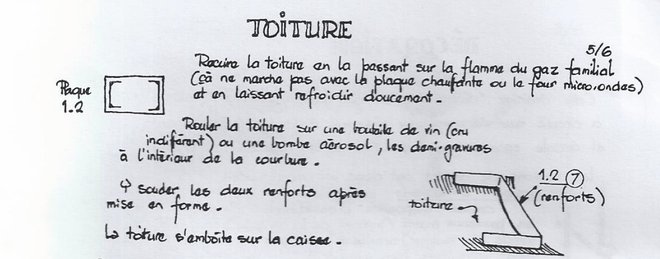 TOITURE
5/6
Recuire la toiture en la passant sur la flamme du gaz familial
(çà ne marche pas avec la plaque chauffante ou le four micro.ondes)
et en laissant refroidir doucement.
Plaque
1.2
Rouler la toiture sur une bouteille de vin (cru
indiférent) ou une bombe aérosol, les demi-gravures
à l'intérieur de la courbure.
Y souder les deux renforts après
mise en forme.
La toiture s'emboîte sur la caisse.
toiture
1.2 7
(renforts)